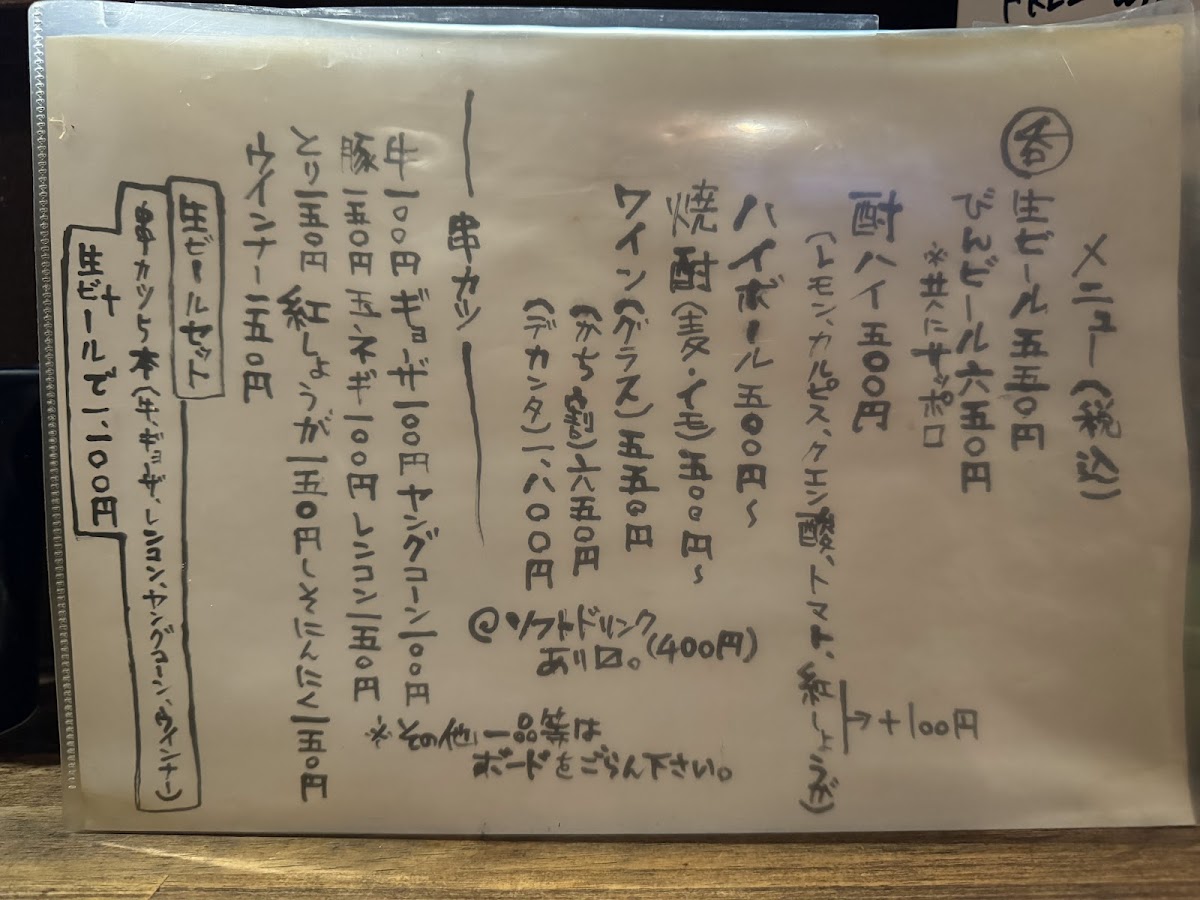 メニュー(税込)
呑 生ビール五五〇円
びんビール六五〇円
※共にサッポロ
酎ハイ五〇〇円
(レモン、カルピス、クエン酸、トマト、紅しょうが)
→+一〇〇円
ハイボール五〇〇円〜
焼酎(麦・イモ)五〇〇円〜
ワイン(グラス)五五〇円
(かち割)六五〇円
(デカンタ)一、八〇〇円
@ソフトドリンク
あり〼。(400円)
串カツ
牛一〇〇円 ギョーザ一〇〇円 ヤングコーン一〇〇円
豚一五〇円 玉ネギ一〇〇円 レンコン一五〇円
とり一五〇円 紅しょうが一五〇円 しそにんにく一五〇円
ウインナー一五〇円
※その他一品等は
ボードをごらん下さい。
生ビールセット
串カツ5本(牛、ギョーザ、レンコン、ヤングコーン、ウインナー)
+
生ビールで一、一〇〇円